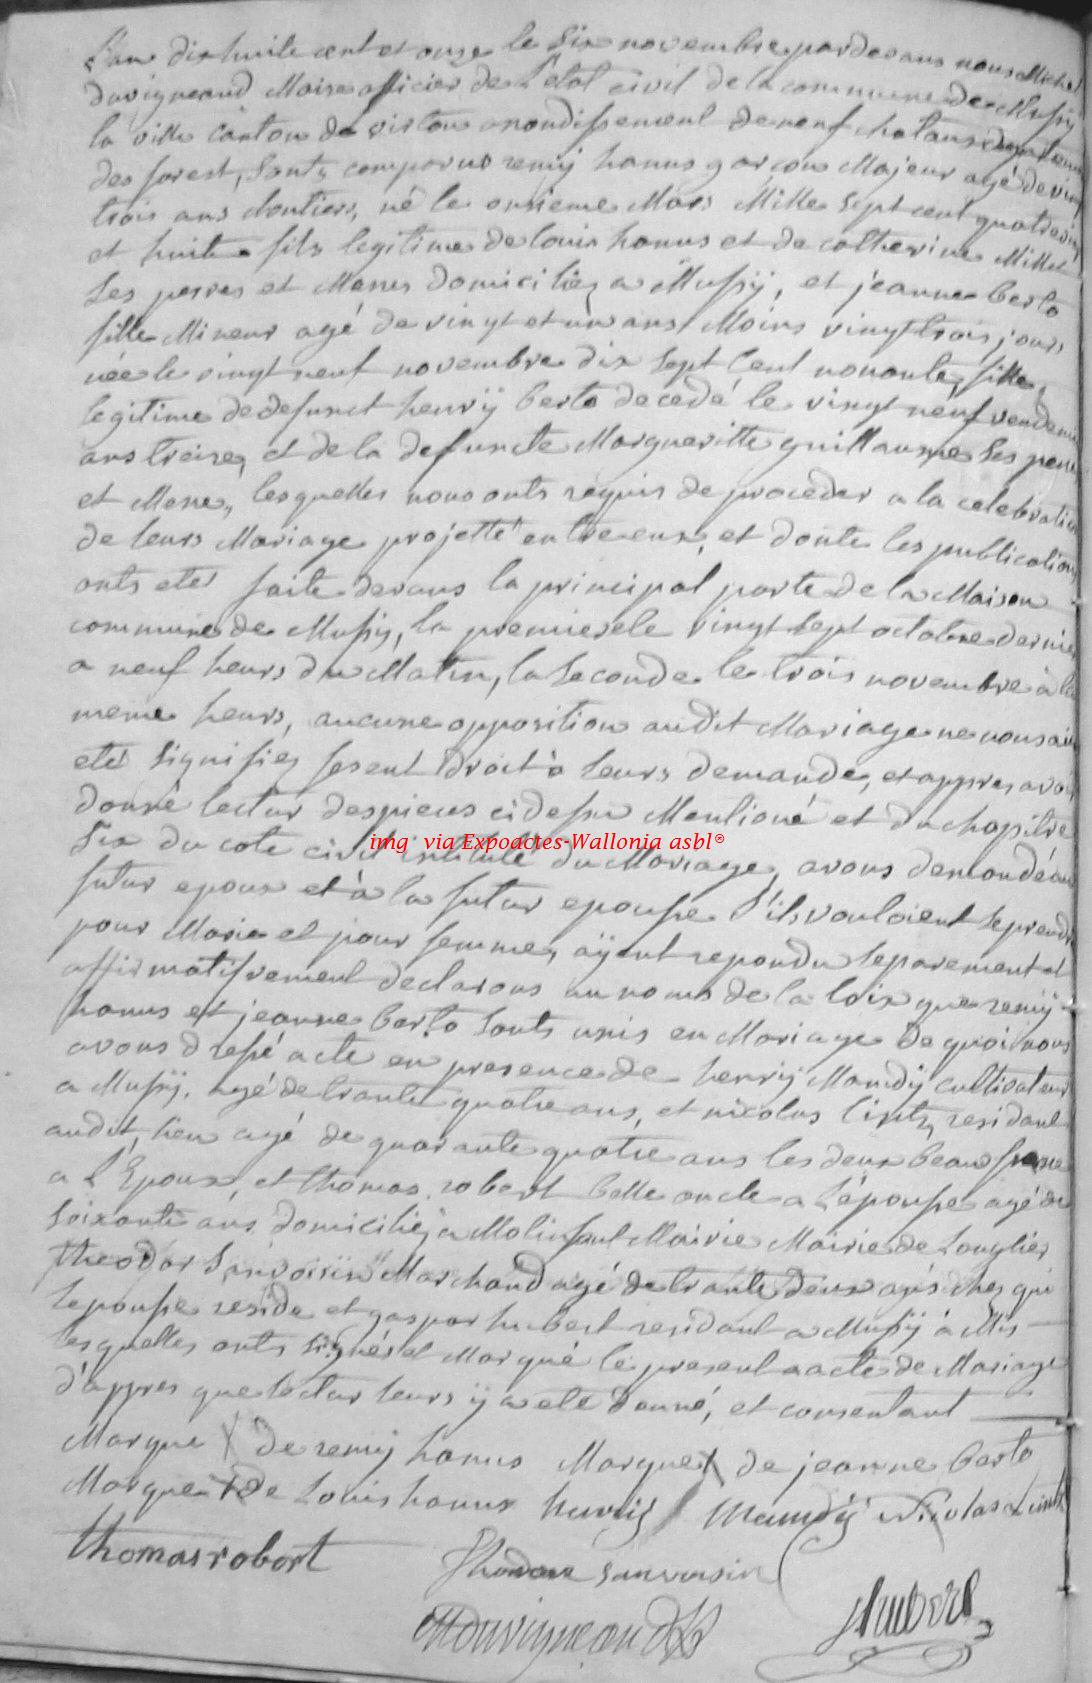 L'an dix huite cent et onze le six novembre pardevans nous Michel
duvigneaud Maire officier de L'etat civil de la commune de Mussy
la ville canton de virton arrondissement de neufchataux departement
des forest, sonts comparus remij hanus garçon Majeur agé de vingt
trois ans dentiers, né le onsieme Mars Mille sept cent quatrevingt
et huite fils legitime de louis hanus et de catherine Millet
ses perres et Merres domiciliez a Mussÿ, et jeanne berto
fille Mineur agé de vingt et un ans Moins vingt trois jours
née le vingt neuf novembre dix sept Cent nonante, fille
legitime de defunct henrÿ berto decedé le vingt neuf vendemi
ans treize, et de la defuncte Margueritte guillaume ses pere
et Mere, lesquelles nous onts requis de proceder a la celebration
de leurs Mariage projetté entre eux, et donte les publications
onts eté faite devans la principal porte de la Maison
commune de Mussÿ, la premiere le vingt sept octobre dernier
a neuf heurs du Matin, la seconde le trois novembre à la
meme heurs, aucune opposition audit Mariage ne nous ait
eté signifiez fesent droit à leurs demande, et appres avoir
donné lectur des pieces cidessu Mentioné et du chapitre
six du cote civil intitulé du Mariage, avons demondé au
img via Expoactes-Wallonia asbl®
futur epoux et à la futur epouse s'ils vouloient se prendre
pour Marie et pour femme, aÿent repondu separement et
affirmatifvement declarons au noms de la loix que remij
hanus et jeanne berto sonts unis en Mariage de quoi nous
avons dressé acte en presence de henrÿ Mandÿ cultivateur
a Mussÿ, agé de trante quatre ans, et nicolas lintz, residant
audit lieu agé de quarante quatre ans les deux beau frere
a L'Epoux, et thomas robert belle oncle a L'épouse agé de
soixante ans domiciliéz a Molinfaul Mairie Mairie de Longlier
theodor sanvoisin Marchand agé de trante deux ans chez qui
lepouse reside et gaspar hubert residant a Mussÿ à Mis
lesquelles onts signés et Marqué le present acte de Mariage
d'appres que lectur leurs ÿ a eté donné, et consentant
Marque X de remij hanus Marque X de jeanne berto
Marque X de Louis hanus henrÿ Mandÿ Nicolas Lintz
thomas robert
Theodore sanvoisin
MDuvigneaud
Hubert